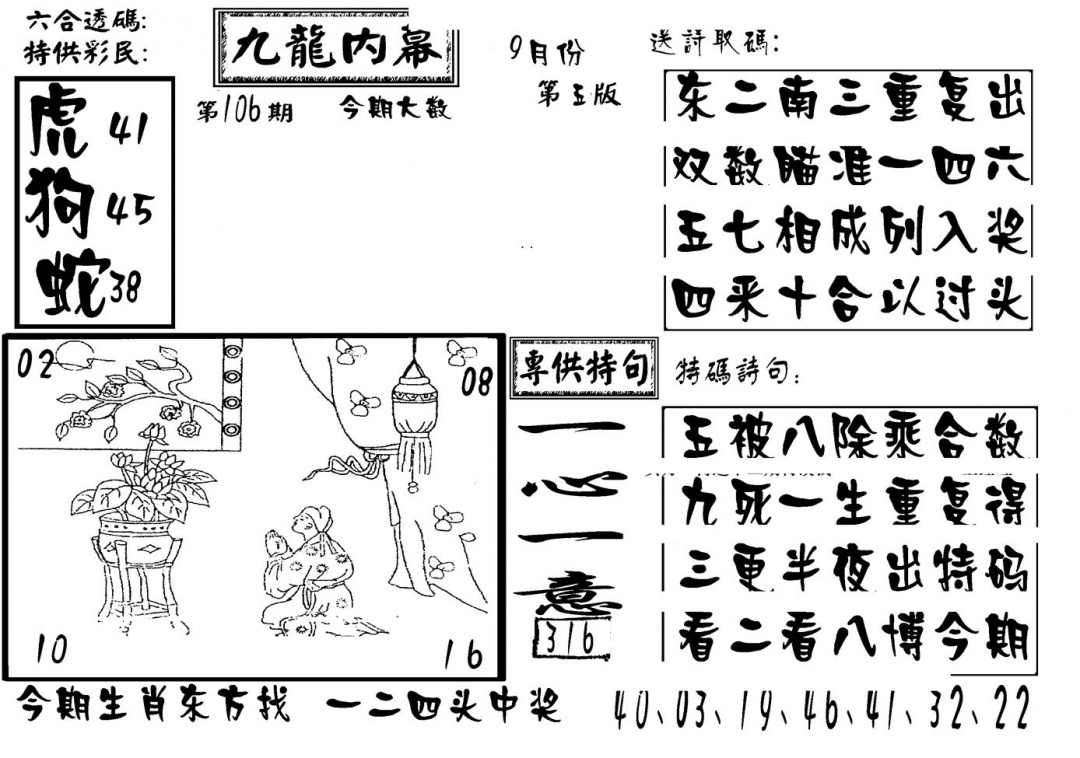 六合透碼:
特供彩民:
九龍内幕
第106期
今期大数
9月份
第五版
虎 41
狗 45
蛇 38
送詩取碼:
东二南三重复出
双数瞄准一四六
五七相成列入奖
四采十合以过头
02
08
10
16
專供特句
一心一意
316
特碼詩句:
五被八除乘合数
九死一生重复得
三更半夜出特码
看二看八博今期
今期生肖东方找 一二四头中奖 40、03、19、46、41、32、22